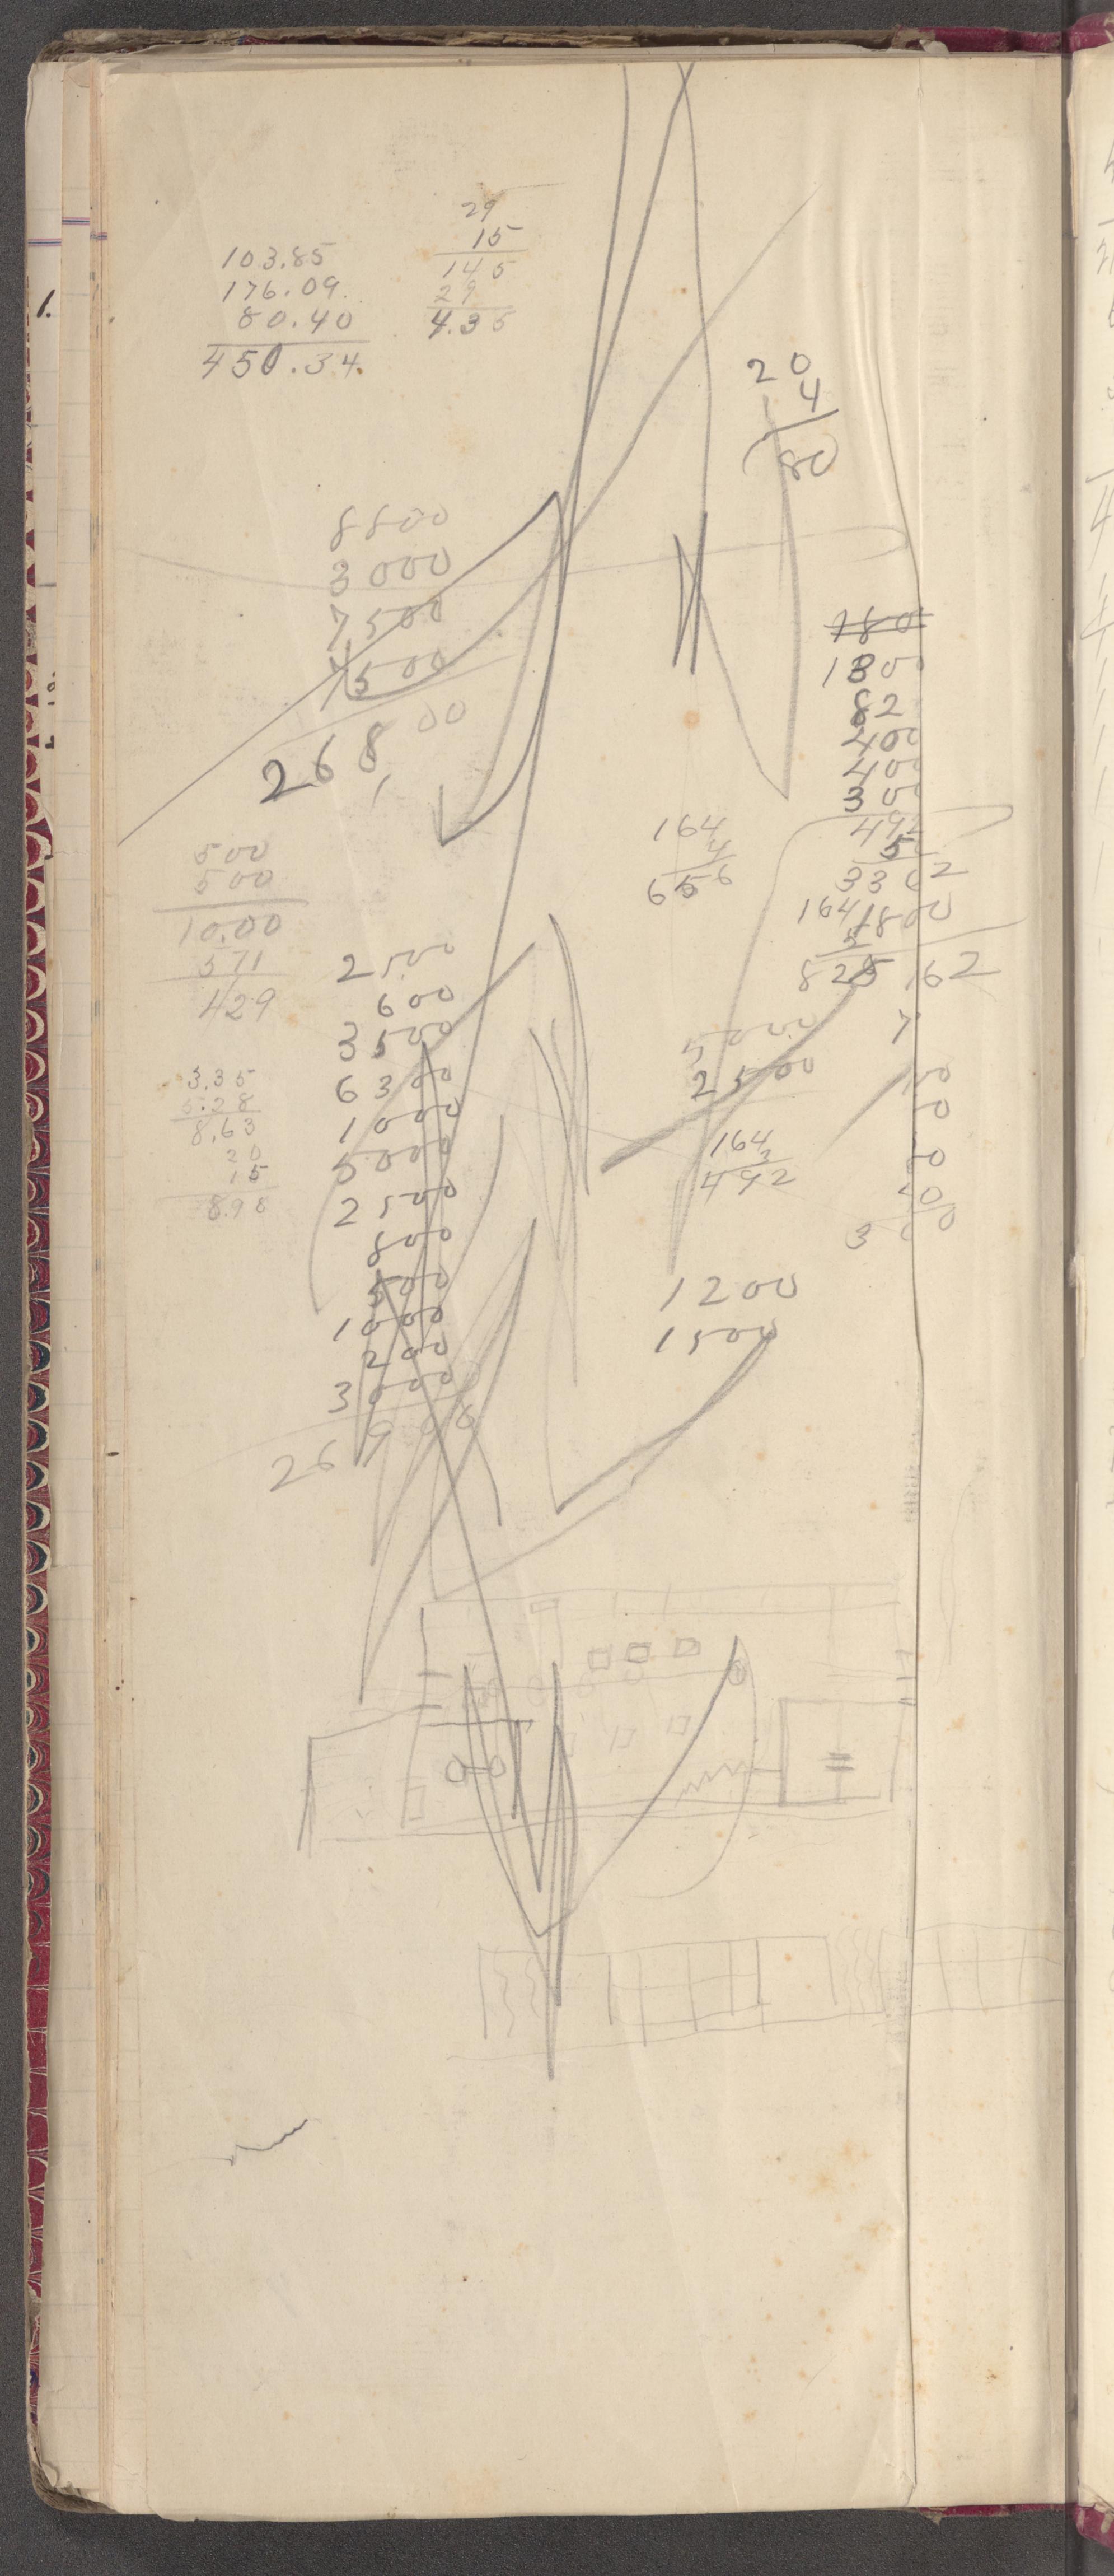 1.
29
15
145
29
4.35
103.85
176.09.
80.40
450.34.
20
4
80
8800
3000
7500
7500
268,00
180
1800
82
400
400
300
492
5
3302
164
4
656
500
500
10.00
571
429
164 1800
5
825 162
2500
600
3500
6300
1000
5000
2500
800
500
1000
200
3000
5000
2500
164
3
492
3.35
5.28
8.63
20
15
8.98
1200
1500